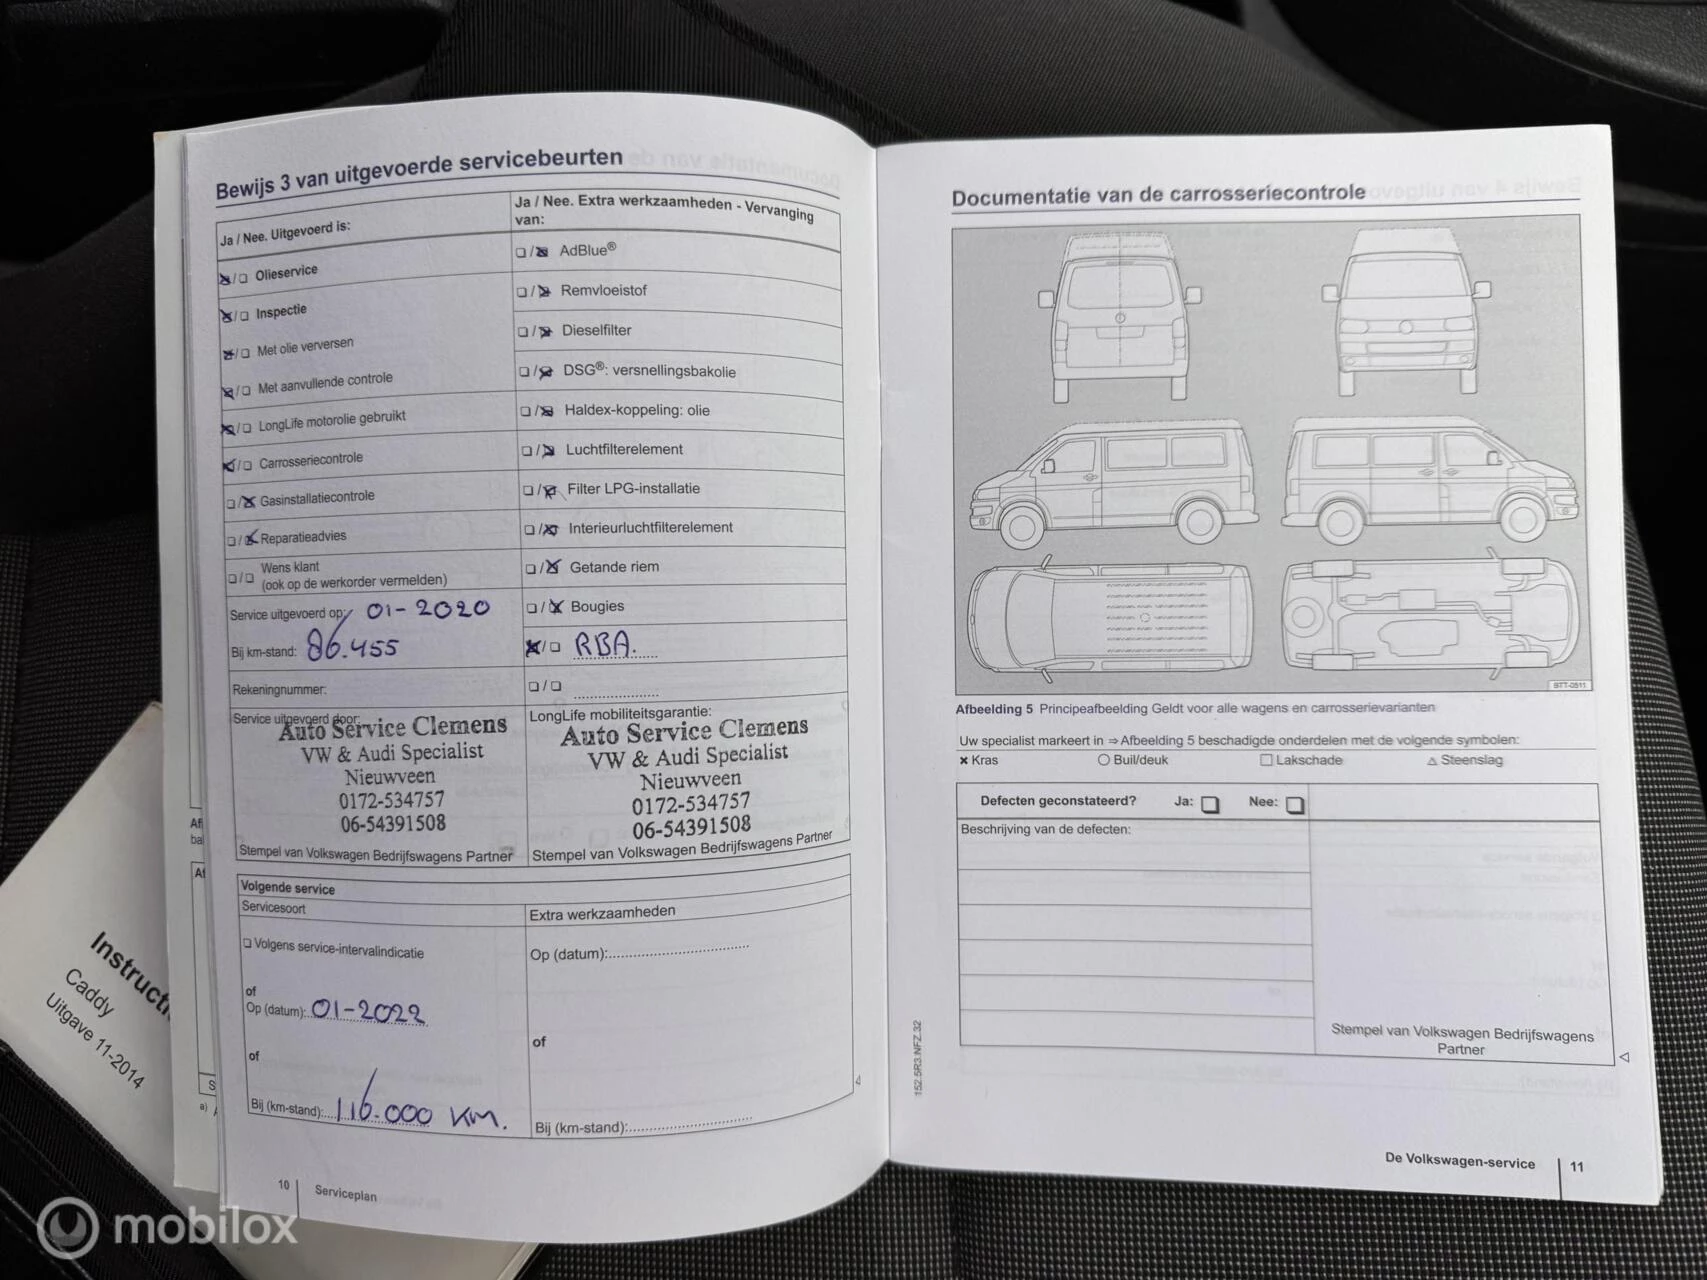 Bewijs 3 van uitgevoerde servicebeurten
Ja / Nee. Uitgevoerd is:
Olieservice
Inspectie
Met olie verversen
Met aanvullende controle
LongLife motorolie gebruikt
Carrosseriecontrole
Gasinstallatiecontrole
Reparatieadvies
Wens klant
(ook op de werkorder vermelden)
Service uitgevoerd op: 01-2020
Bij km-stand: 86.455
Rekeningnummer:
Service uitgevoerd door:
Auto Service Clemens
VW & Audi Specialist
Nieuwveen
0172-534757
06-54391508
Stempel van Volkswagen Bedrijfswagens Partner
Ja / Nee. Extra werkzaamheden - Vervanging
van:
AdBlue®
Remvloeistof
Dieselfilter
DSG®: versnellingsbakolie
Haldex-koppeling: olie
Luchtfilterelement
Filter LPG-installatie
Interieurluchtfilterelement
Getande riem
Bougies
RBA.
LongLife mobiliteitsgarantie:
Auto Service Clemens
VW & Audi Specialist
Nieuwveen
0172-534757
06-54391508
Stempel van Volkswagen Bedrijfswagens Partner
Volgende service
Servicesoort
Volgens service-intervalindicatie
of
Op (datum): 01-2022
of
Bij (km-stand): 116.000 KM.
Extra werkzaamheden
Op (datum):
of
Bij (km-stand):
10 Serviceplan
Documentatie van de carrosseriecontrole
BTT-0511
Afbeelding 5 Principeafbeelding Geldt voor alle wagens en carrosserievarianten
Uw specialist markeert in ⇒ Afbeelding 5 beschadigde onderdelen met de volgende symbolen:
Kras Buil/deuk Lakschade Steenslag
Defecten geconstateerd? Ja: Nee:
Beschrijving van de defecten:
Stempel van Volkswagen Bedrijfswagens
Partner
152.5R3.NFZ.32
De Volkswagen-service 11
Caddy
Uitgave 11-2014
mobilox